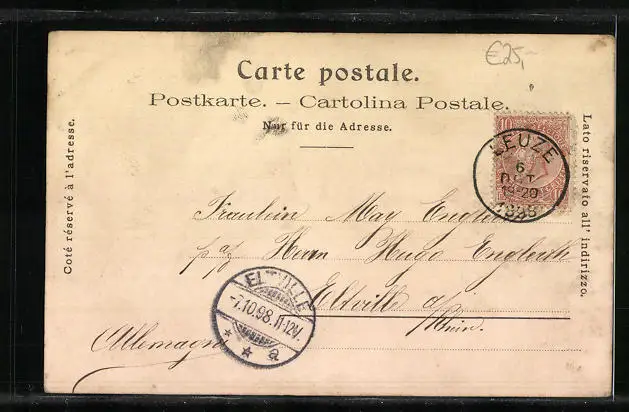 €25,-
Carte postale.
Postkarte. – Cartolina Postale.
Nur für die Adresse.
Coté réservé à l'adresse.
Lato riservato all' indirizzo.
10
LEUZE
6
OCT
19-20
1898
Fräulein May Englerth
p. a/ Herrn Hugo Englerth
Eltville a/
Rhein.
Allemagne
ELTVILLE
-7.10.98.11-12V.
a